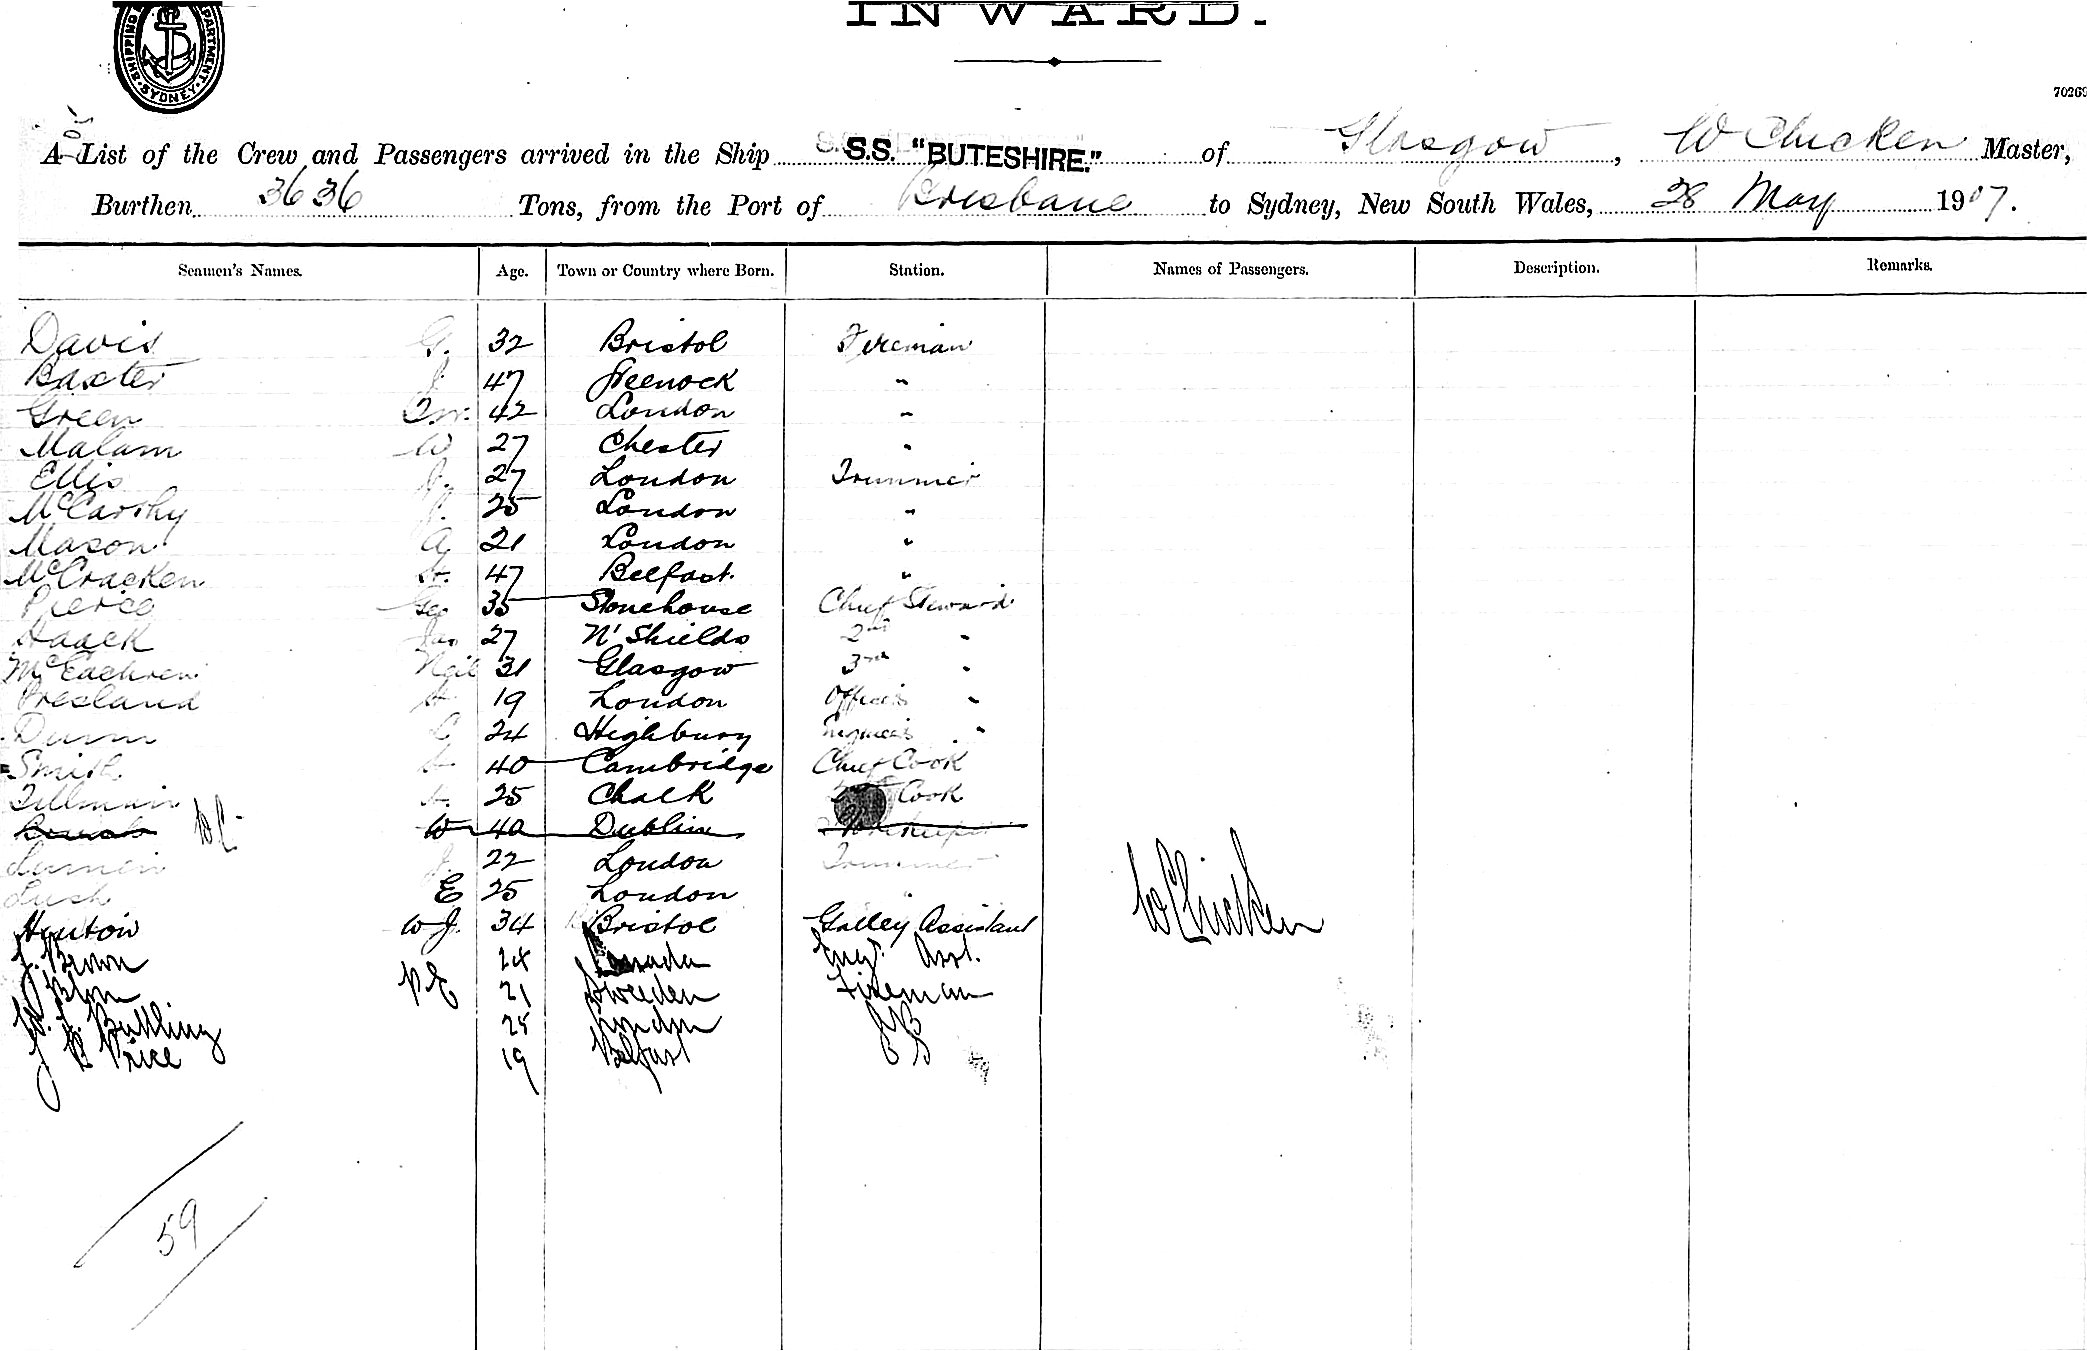 SHIPPING DEPARTMENT SYDNEY
INWARD.
70269
A List of the Crew and Passengers arrived in the Ship S.S. "BUTESHIRE." of Glasgow, W Chicken Master,
Burthen 3636 Tons, from the Port of Brisbane to Sydney, New South Wales, 28 May 1907.
Seamen's Names. Age. Town or Country where Born. Station. Names of Passengers. Description. Remarks.
Davis G. 32 Bristol Fireman
Baxter J. 47 Greenock "
Green 42 London "
Malam W 27 Chester "
Ellis J. 27 London Trimmer
McCarthy J. 25 London "
Mason A 21 London "
McCracken 47 Belfast. "
Pierce Geo 35 Stonehouse Chief Steward
Haack Jas 27 N' Shields 2nd "
McEachren Neil 31 Glasgow 3rd "
Presland 19 London Officers "
Dunn 24 Highbury Engineers "
Smith 40 Cambridge Chief Cook
Tillman 25 Chalk 2nd Cook
W 40 Dublin Storekeeper
WC
J. 22 London Trimmer
Lush E 25 London "
Henton W J. 34 Bristol Galley Assistant
J. Brown 24 Canada Engr. Asst.
Blom 21 Sweden Fireman
W. J. Butling 25 London
J B Price 19 Belfast
W Chicken
59